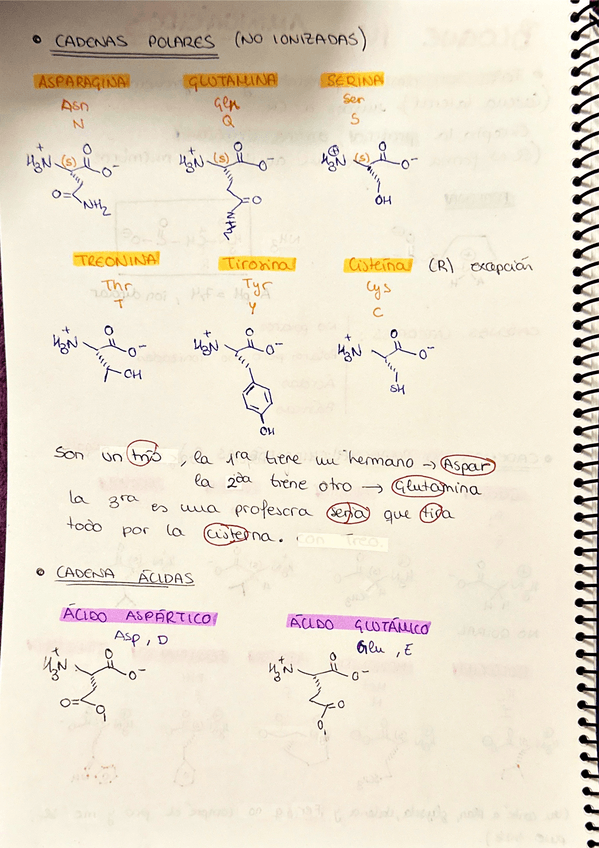 • CADENAS POLARES (NO IONIZADAS)
ASPARAGINA GLUTAMINA SERINA
Asn Gln Ser
N Q S
H₃N⁺ (S) O O⁻ H₃N⁺ (S) O O⁻ H₃N⁺ (S) O O⁻
O NH₂ O OH
TREONINA Tirosina Cisteína (R) excepción
Thr Tyr Cys
T Y C
H₃N⁺ O O⁻ H₃N⁺ O O⁻ H₃N⁺ O O⁻
OH SH
OH
Son un trío, la 1ra tiene un hermano → Aspar
la 2da tiene otro → Glutamina
la 3ra es una profesora seria que tira
todo por la cisterna.
• CADENA ÁCIDAS
ÁCIDO ASPÁRTICO ÁCIDO GLUTÁMICO
Asp, D Glu, E
H₃N⁺ O O⁻ H₃N⁺ O O⁻
O O⁻ O
O⁻